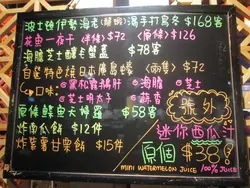 波士頓伊勢海老(龍蝦)湯手打烏冬 $168客
花魚一夜干 (半條) $72 (原條) $126
海膽芝士釀卡蟹蓋 $78客
自選特色燒日本廣島蠔 (兩隻) $72
口味: 黑松露鵝肝 海膽
芝士明太子 芝士 蒜香
原條鰻魚卡邦尼 $58客
炸南瓜餅 $12件
炸紫薯甘栗餅 $15件
號外
迷你西瓜汁
原個 $38!
MINI WATERMELON JUICE 100% JUICE